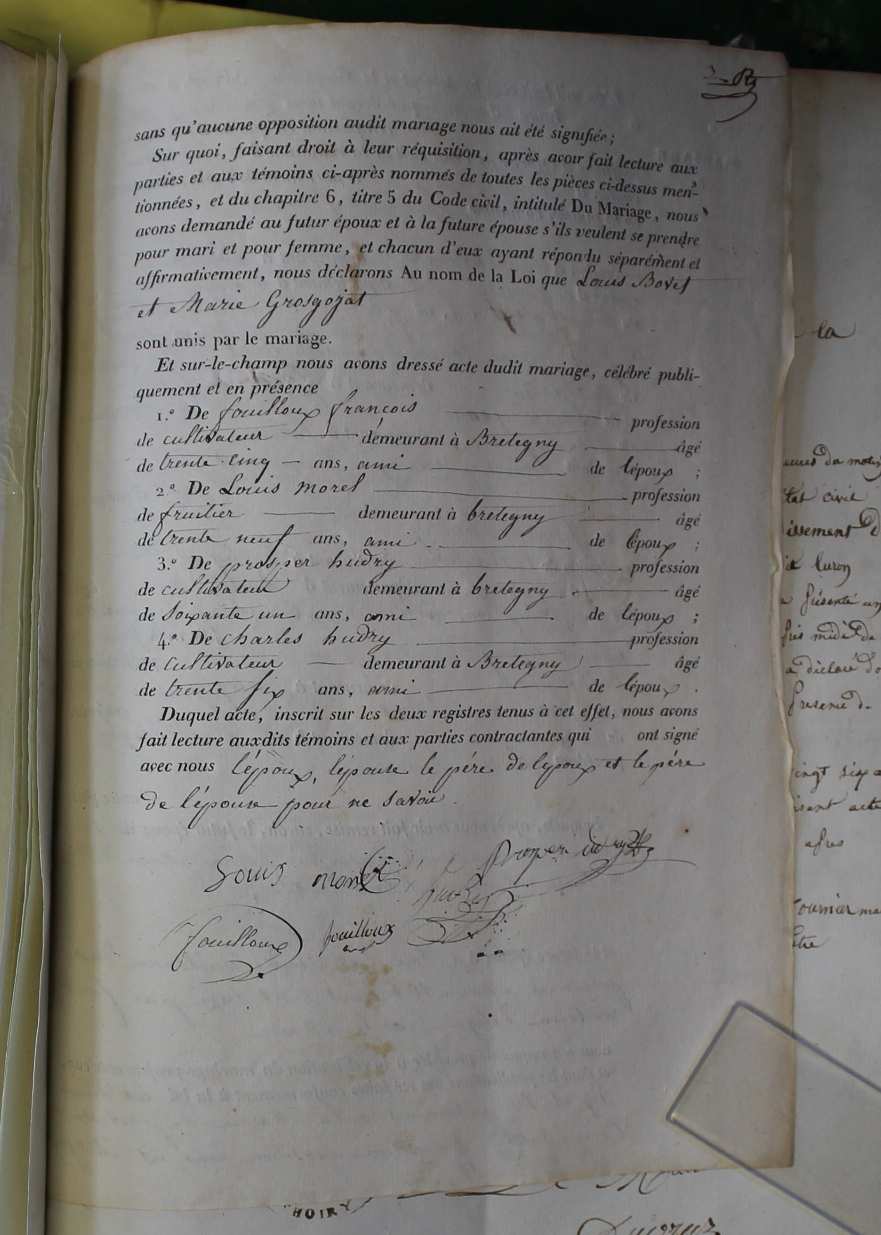 sans qu'aucune opposition audit mariage nous ait été signifiée;
Sur quoi, faisant droit à leur réquisition, après avoir fait lecture aux
parties et aux témoins ci-après nommés de toutes les pièces ci-dessus men-
tionnées, et du chapitre 6, titre 5 du Code civil, intitulé Du Mariage, nous
avons demandé au futur époux et à la future épouse s'ils veulent se prendre
pour mari et pour femme, et chacun d'eux ayant répondu séparément et
affirmativement, nous déclarons Au nom de la Loi que Louis Bovet
et Marie Grosgojat
sont unis par le mariage.
Et sur-le-champ nous avons dressé acte dudit mariage, célébré publi-
quement et en présence
1.º De fouilloux françois profession
de cultivateur demeurant à Bretegny âgé
de trente cinq ans, ami de l'époux ;
2.º De Louis Morel profession
de fruitier demeurant à bretegny âgé
de trente neuf ans, ami de l'époux ;
3.º De prosper hudry profession
de cultivateur demeurant à bretegny âgé
de soixante un ans, ami de lépoux ;
4.º De charles hudry profession
de cultivateur demeurant à Bretegny âgé
de trente six ans, ami de lépoux .
Duquel acte, inscrit sur les deux registres tenus à cet effet, nous avons
fait lecture auxdits témoins et aux parties contractantes qui ont signé
avec nous l'époux, l'épouse le père de lepoux et le père
de l'épouse pour ne savoir.
Louis morel
fouilloux fouilloux
la
état civil
présenté
vingt six
acte
HOIRY